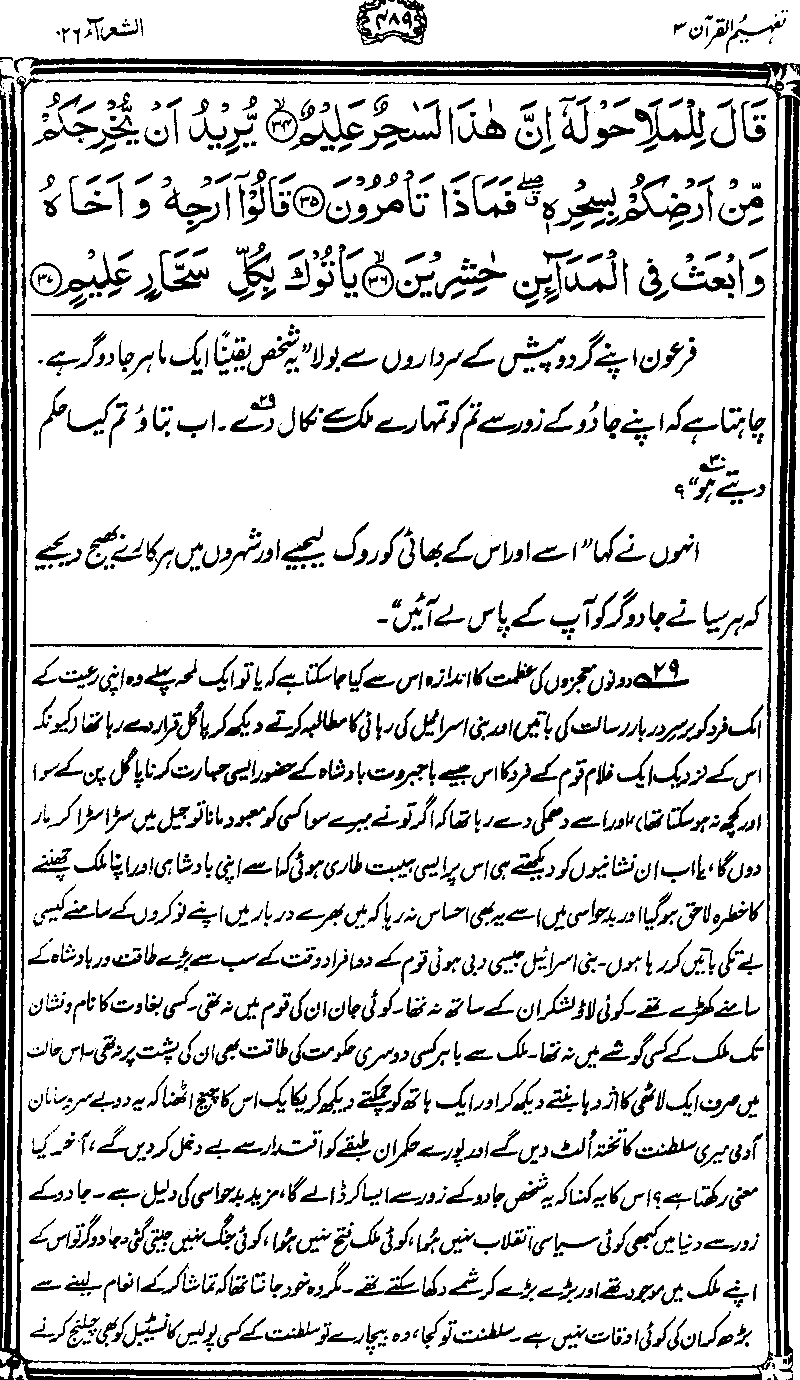 تفہیم القرآن ۳
۴۸۹
الشعرآء ۲۶
قَالَ لِلْمَلَاِ حَوْلَهٗٓ اِنَّ هٰذَا لَسٰحِرٌ عَلِيْمٌ ﴿۳۴﴾ يُّرِيْدُ اَنْ يُّخْرِجَكُمْ
مِّنْ اَرْضِكُمْ بِسِحْرِهٖ ۖ فَمَاذَا تَاْمُرُوْنَ ﴿۳۵﴾ قَالُوْٓا اَرْجِهْ وَ اَخَاهُ
وَ ابْعَثْ فِی الْمَدَآئِنِ حٰشِرِيْنَ ﴿۳۶﴾ يَاْتُوْكَ بِكُلِّ سَحَّارٍ عَلِيْمٍ ﴿۳۷﴾
فرعون اپنے گرد و پیش کے سرداروں سے بولا ”یہ شخص یقیناً ایک ماہر جادوگر ہے۔
چاہتا ہے کہ اپنے جادُو کے زور سے تم کو تمہارے ملک سے نکال دے۲۹۔ اب بتاؤ تم کیا حکم
دیتے ہو۳۰“؟
انہوں نے کہا ”اسے اور اس کے بھائی کو روک لیجیے اور شہروں میں ہرکارے بھیج دیجیے
کہ ہر سیانے جادوگر کو آپ کے پاس لے آئیں“۔
۲۹ دونوں معجزوں کی عظمت کا اندازہ اس سے کیا جا سکتا ہے کہ یا تو ایک لمحہ پہلے وہ اپنی رعیت کے
ایک فرد کو برسرِ دربار رسالت کی باتیں اور بنی اسرائیل کی رہائی کا مطالبہ کرتے دیکھ کر پاگل قرار دے رہا تھا (کیونکہ
اس کے نزدیک ایک غلام قوم کے فرد کا اس جیسے با جبروت بادشاہ کے حضور ایسی جسارت کرنا پاگل پن کے سوا
اور کچھ نہ ہو سکتا تھا) اور اسے دھمکی دے رہا تھا کہ اگر تو نے میرے سوا کسی کو معبود مانا تو جیل میں سڑا سڑا کر مار
دوں گا، یا اب ان نشانیوں کو دیکھتے ہی اس پر ایسی ہیبت طاری ہوئی کہ اسے اپنی بادشاہی اور اپنا ملک چھننے
کا خطرہ لاحق ہو گیا اور بدحواسی میں اسے یہ بھی احساس نہ رہا کہ میں بھرے دربار میں اپنے نوکروں کے سامنے کیسی
بے تکی باتیں کر رہا ہوں۔ بنی اسرائیل جیسی دبی ہوئی قوم کے دو افراد وقت کے سب سے بڑے طاقت ور بادشاہ کے
سامنے کھڑے تھے۔ کوئی لاؤ لشکر ان کے ساتھ نہ تھا۔ کوئی جان ان کی قوم میں نہ تھی۔ کسی بغاوت کا نام و نشان
تک ملک کے کسی گوشے میں نہ تھا۔ ملک سے باہر کسی دوسری حکومت کی طاقت بھی ان کی پشت پر نہ تھی۔ اس حالت
میں صرف ایک لاٹھی کا اژدہا بنتے دیکھ کر اور ایک ہاتھ کو چمکتے دیکھ کر یکایک اس کا چیخ اٹھنا کہ یہ دو بے سر و سامان
آدمی میری سلطنت کا تختہ اُلٹ دیں گے اور پورے حکمران طبقے کو اقتدار سے بے دخل کر دیں گے، آخر کیا
معنی رکھتا ہے؟ اس کا یہ کہنا کہ یہ شخص جادو کے زور سے ایسا کر ڈالے گا، مزید بدحواسی کی دلیل ہے۔ جادو کے
زور سے دنیا میں کبھی کوئی سیاسی انقلاب نہیں ہُوا، کوئی ملک فتح نہیں ہُوا، کوئی جنگ نہیں جیتی گئی۔ جادوگر تو اس کے
اپنے ملک میں موجود تھے اور بڑے بڑے کرشمے دکھا سکتے تھے۔ مگر وہ خود جانتا تھا کہ تماشا کر کے انعام لینے سے
بڑھ کر ان کی کوئی اوقات نہیں ہے۔ سلطنت تو کجا، وہ بیچارے تو سلطنت کے کسی پولیس کانسٹیبل کو بھی چیلنج کرنے